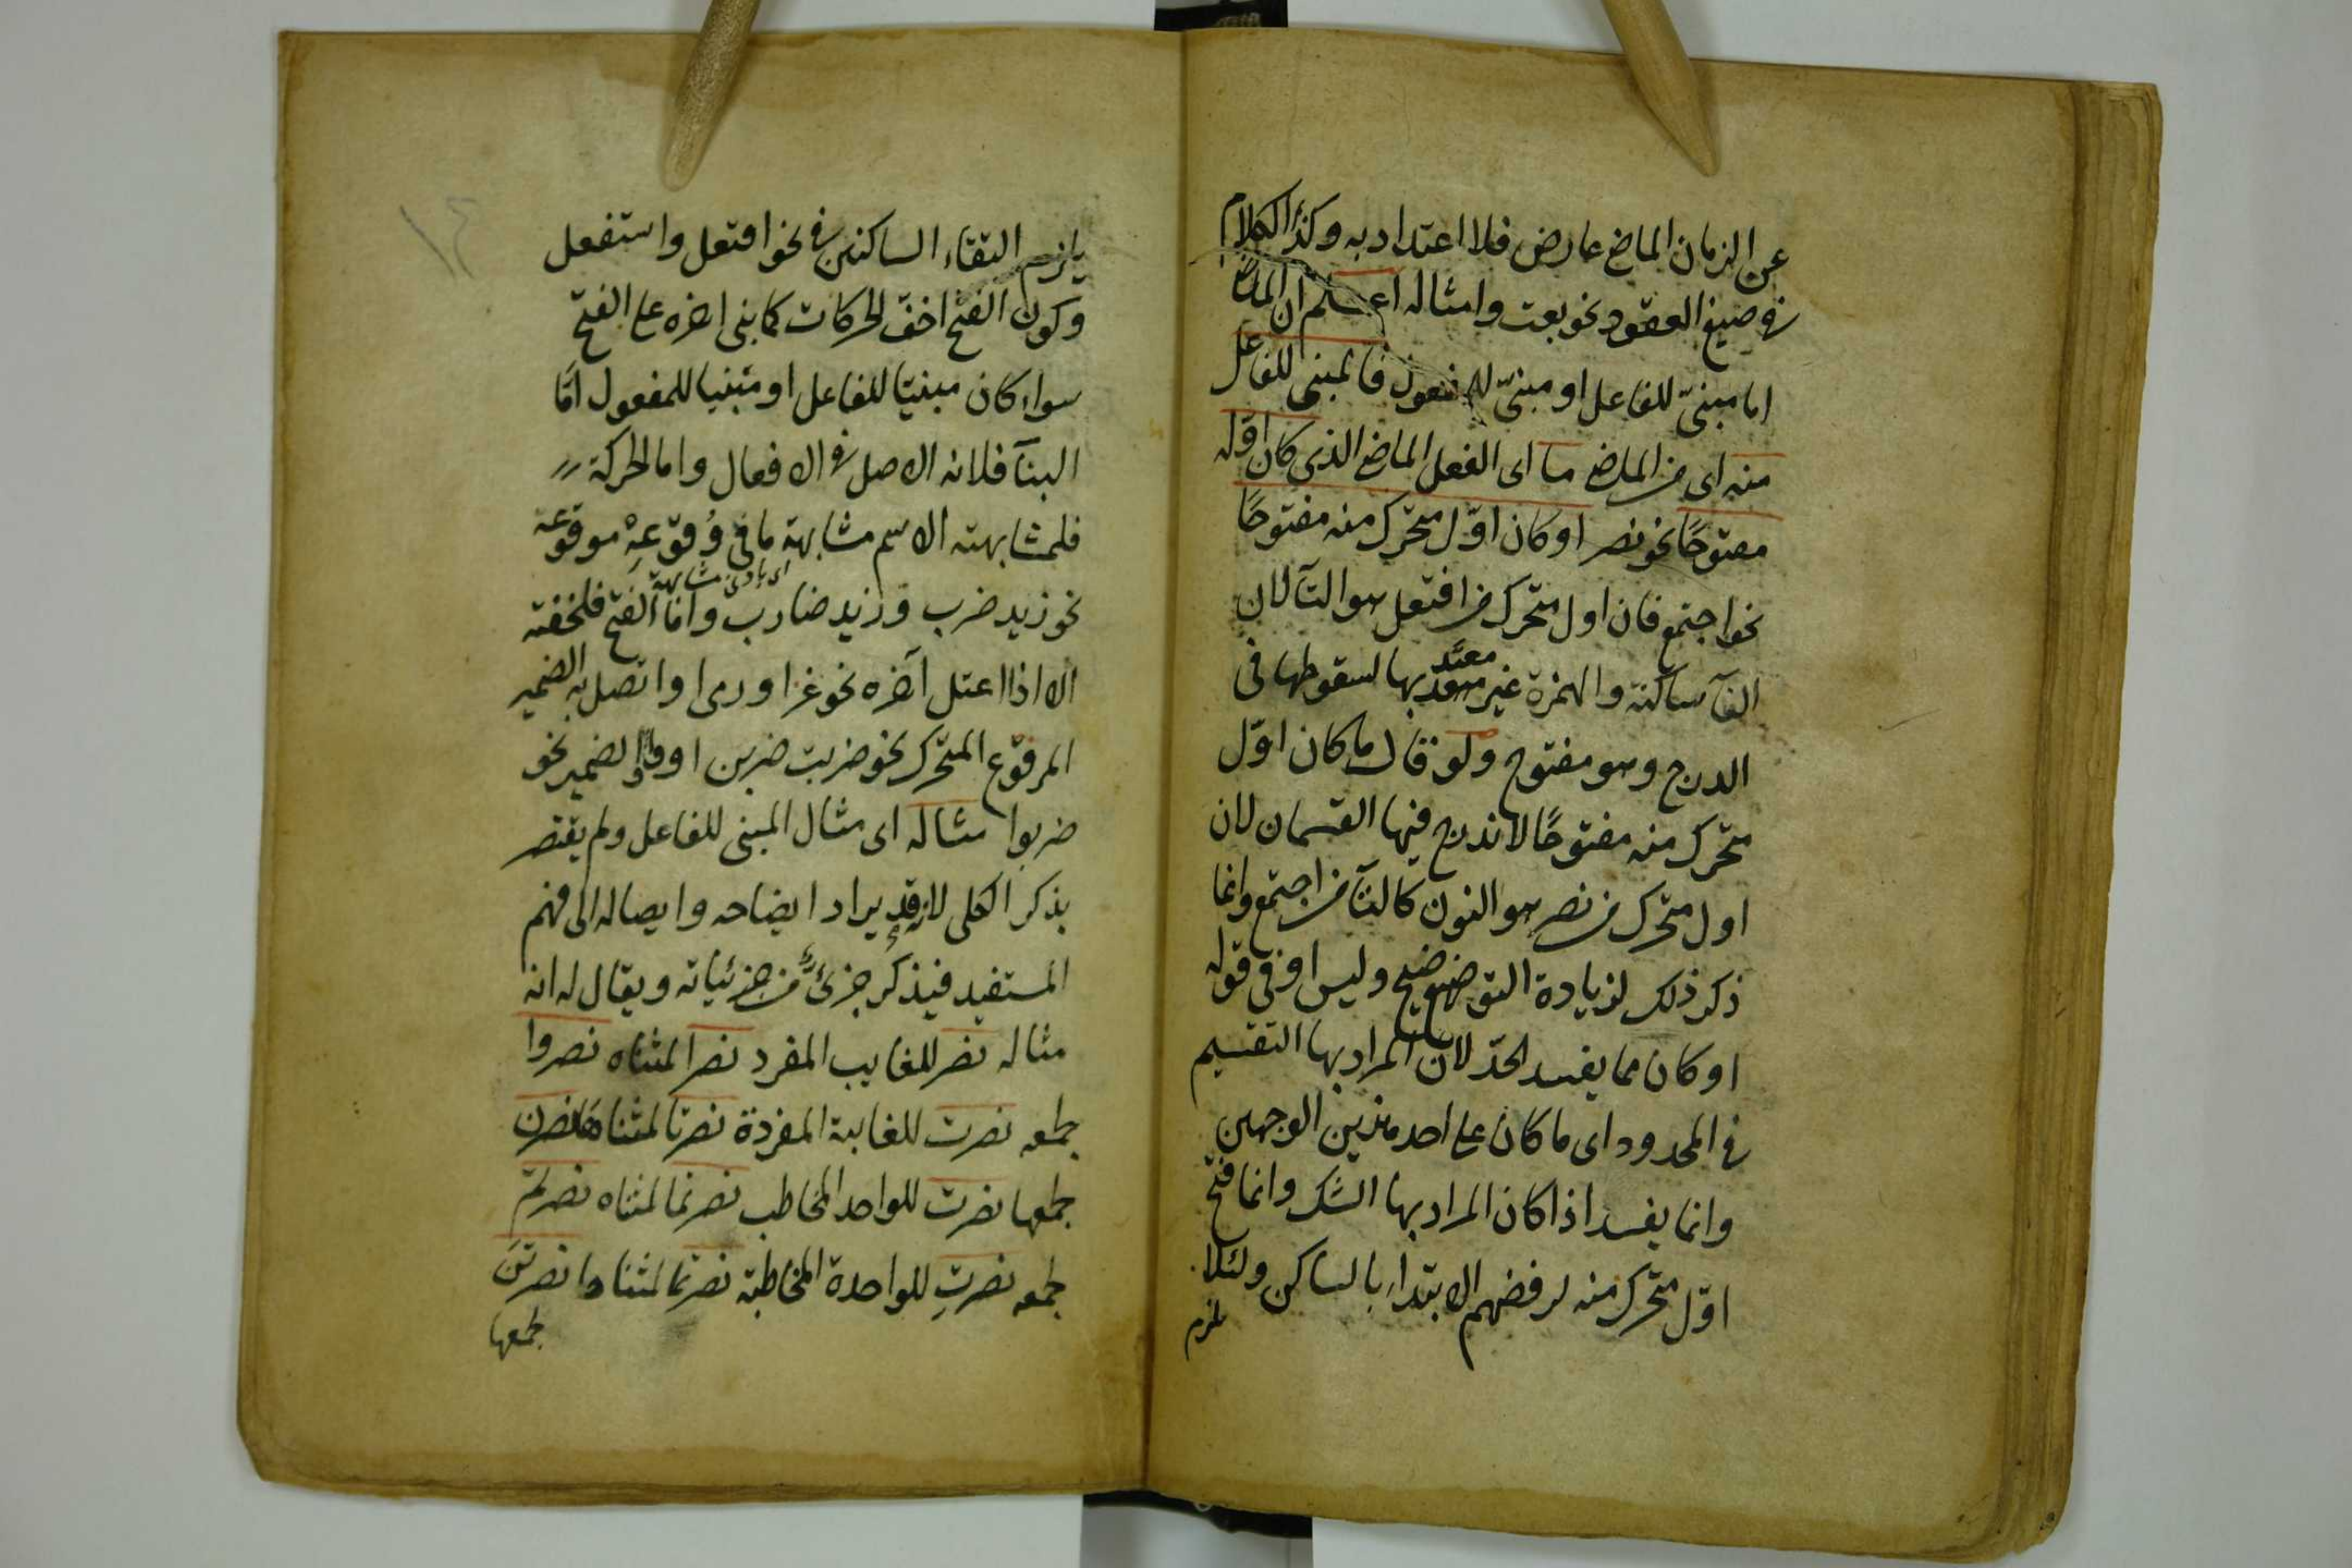 عن الزمان الماضى عارض فلا اعتداد به وكذا الكلام
فى صيغ العقود نحو بعت وامثاله اعلم ان الماضى
اما مبنىّ للفاعل او مبنىّ للمفعول فالمبنى للفاعل
منه اى من الماضى ما اى الفعل الماضى الذى كان اوّله
مفتوحًا نحو نصر او كان اوّل متحرّك منه مفتوحًا
نحو اجتمع فان اول متحرك من افتعل هو التآ لان
الفآ ساكنة والهمزة غير معتدّ بها لسقوطها فى
الدرج وهو مفتوح ولو قال ما كان اوّل
متحرّك منه مفتوحًا لاندرج فيها القسمان لان
اول متحرك من نصر هو النون كالتآ من اجتمع وانما
ذكر ذلك لزيادة التوضيح وليس او فى قوله
او كان مما يفسد الحدّ لان المراد بها التقسيم
فى المحدود اى ما كان على احد هذين الوجهين
وانما يفسد اذا كان المراد بها الشك وانما فتح
اوّل متحرّك منه لرفضهم الابتداء بالساكن ولئلا
يلزم
١٤
يلزم التقاء الساكنين فى نحو افتعل واستفعل
وكون الفتح اخفّ الحركات كما بنى اخره على الفتح
سواء كان مبنيّا للفاعل او مبنيا للمفعول امّا
البنآ فلانه الاصل فى الافعال واما الحركة
فلمشابهته الاسم مشابهة ما فى وُقوعِهْ موقوعه
اى بادنى مشابهة
نحو زيد ضرب و زيد ضارب وامّا الفتح فلخفته
الا اذا اعتل آخره نحو غزا ورمى او اتصل به الضمير
المرفوع المتحرك نحو ضربت ضربن او واو الضمير نحو
ضربوا مثاله اى مثال المبنى للفاعل ولم يقتصر
بذكر الكلى لانه قد يراد ايضاحه وايصاله الى فهم
المستفيد فيذكر جزئى من جزئياته ويقال له انه
مثاله نصر للغايب المفرد نصرا لمثناه نصروا
لجمعه نصرت للغايبة المفردة نصرتا لمثناها نصرن
لجمعها نصرت للواحد المخاطب نصرتما لمثناه نصرتم
لجمعه نصرتِ للواحدة المخاطبة نصرتما لمثناها نصرتنّ
لجمعها